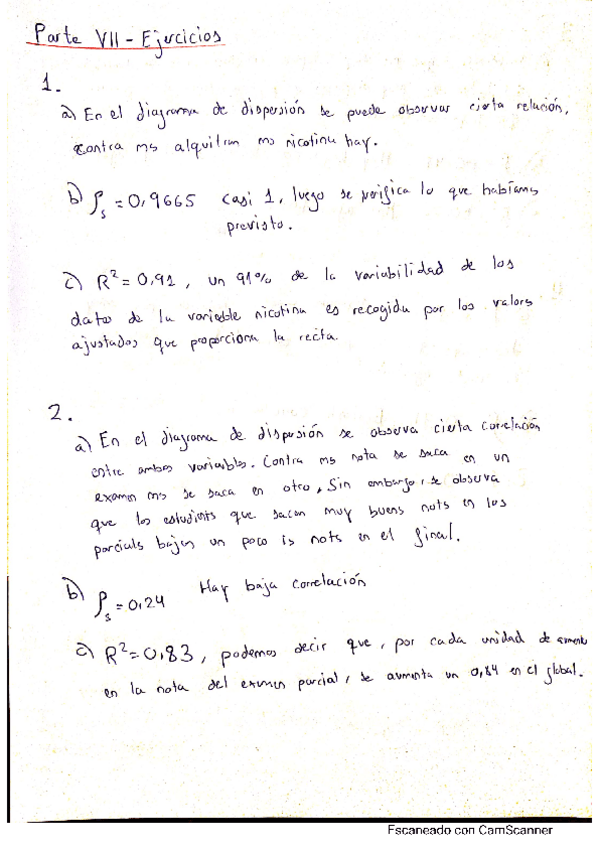 Parte VII - Ejercicios
1.
a) En el diagrama de dispersión se puede observar cierta relación,
contra ms alquitran ms nicotina hay.
b) ρs = 0,9665 casi 1, luego se verifica lo que habíams
previsto.
c) R² = 0,91, un 91% de la variabilidad de los
datos de la variable nicotina es recogida por los valors
ajustados que proporciona la recta.
2.
a) En el diagrama de dispersión se observa cierta correlación
entre ambas variables. Contra ms nota se saca en un
examen ms se saca en otro, Sin embargo, se observa
que los estudiants que sacan muy buens nots en los
parcials bajan un poco ls nots en el final.
b) ρs = 0,24 Hay baja correlación
c) R² = 0,83, podemos decir que, por cada unidad de aumento
en la nota del examen parcial, se aumenta un 0,84 en el global.
Escaneado con CamScanner